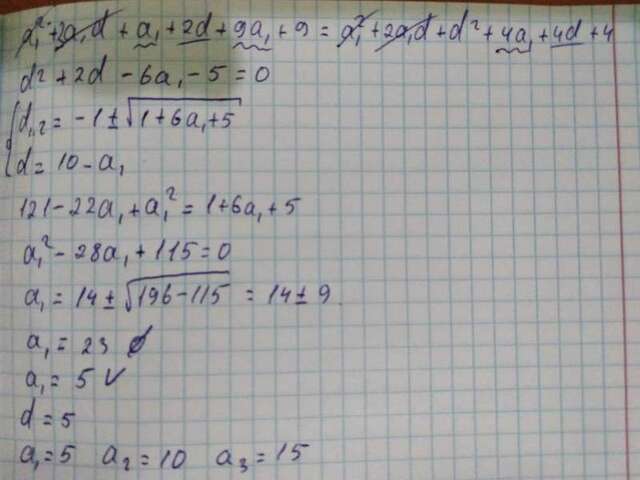 a₁² + 2a₁d + a₁ + 2d + 9a₁ + 9 = a₁² + 2a₁d + d² + 4a₁ + 4d + 4
d² + 2d - 6a₁ - 5 = 0
d₁,₂ = -1 ± √(1 + 6a₁ + 5)
d = 10 - a₁
121 - 22a₁ + a₁² = 1 + 6a₁ + 5
a₁² - 28a₁ + 115 = 0
a₁ = 14 ± √(196 - 115) = 14 ± 9
a₁ = 23 ∅
a₁ = 5 ✓
d = 5
a₁ = 5 a₂ = 10 a₃ = 15